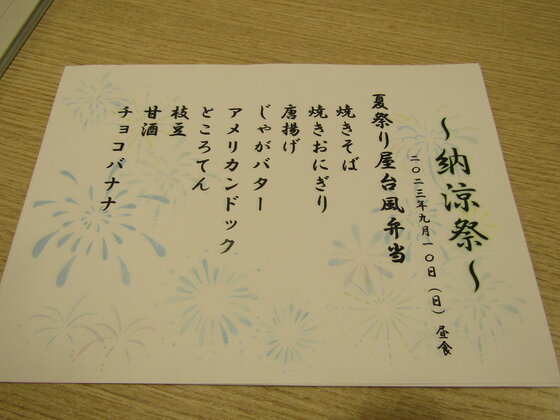 ～納涼祭～
二〇二三年九月一〇日（日）昼食
夏祭り屋台風弁当
焼きそば
焼きおにぎり
唐揚げ
じゃがバター
アメリカンドック
ところてん
枝豆
甘酒
チョコバナナ